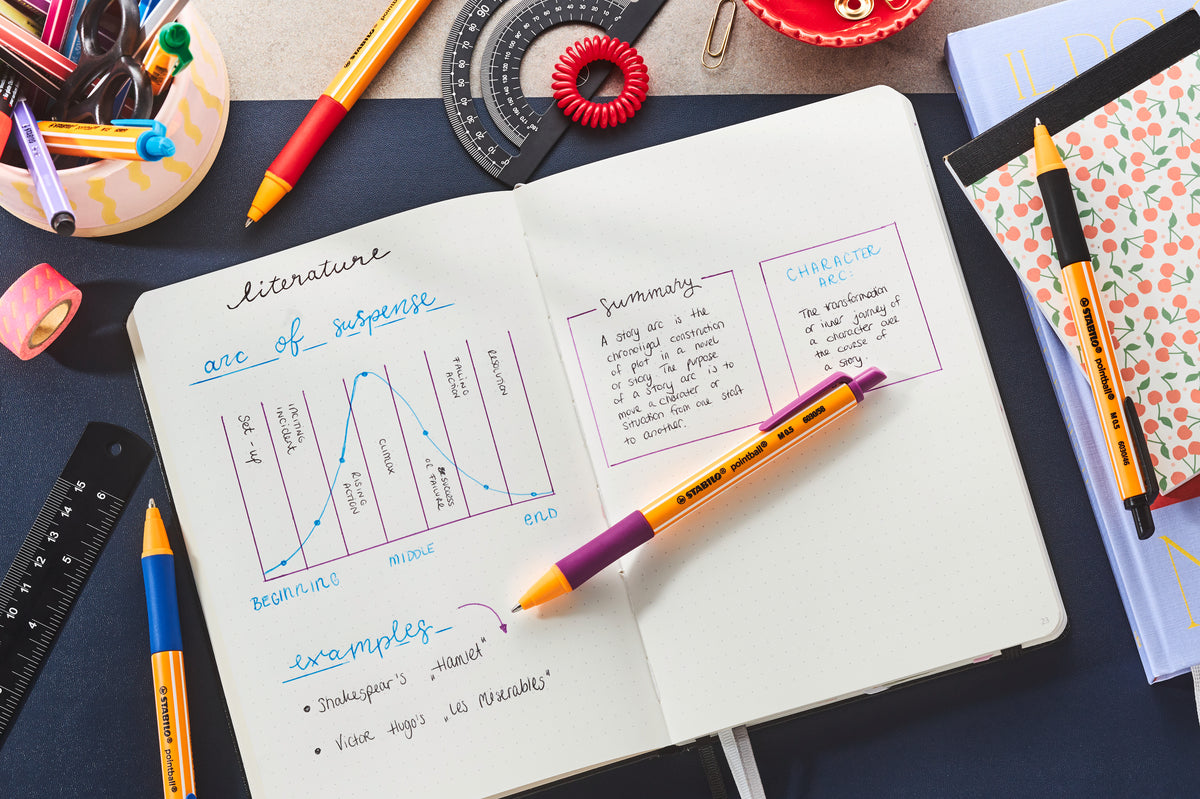 literature
arc of suspense
Set-up
INCITING
INCIDENT
RISING
ACTION
CLIMAX
SUCCESS
OF FAILURE
FALLING
ACTION
RESOLUTION
BEGINNING
MIDDLE
END
examples
• Shakespear's „Hamlet"
• Victor Hugo's „Les Miserables"
summary
A story arc is the
chronoligal construction
of plot in a novel
or story. The purpose
of a story arc is to
move a charater or
situation from one staft
to another.
CHARACTER
ARC:
The transformation
or inner journey of
a character over
the course of
a story.
23
STABILO® pointball® M 0.5 6030/58
STABILO® pointball® M 0.5 6030/46
STABILO® pointball®
STABILO®
15
14
13
12
11
10
6
5
4